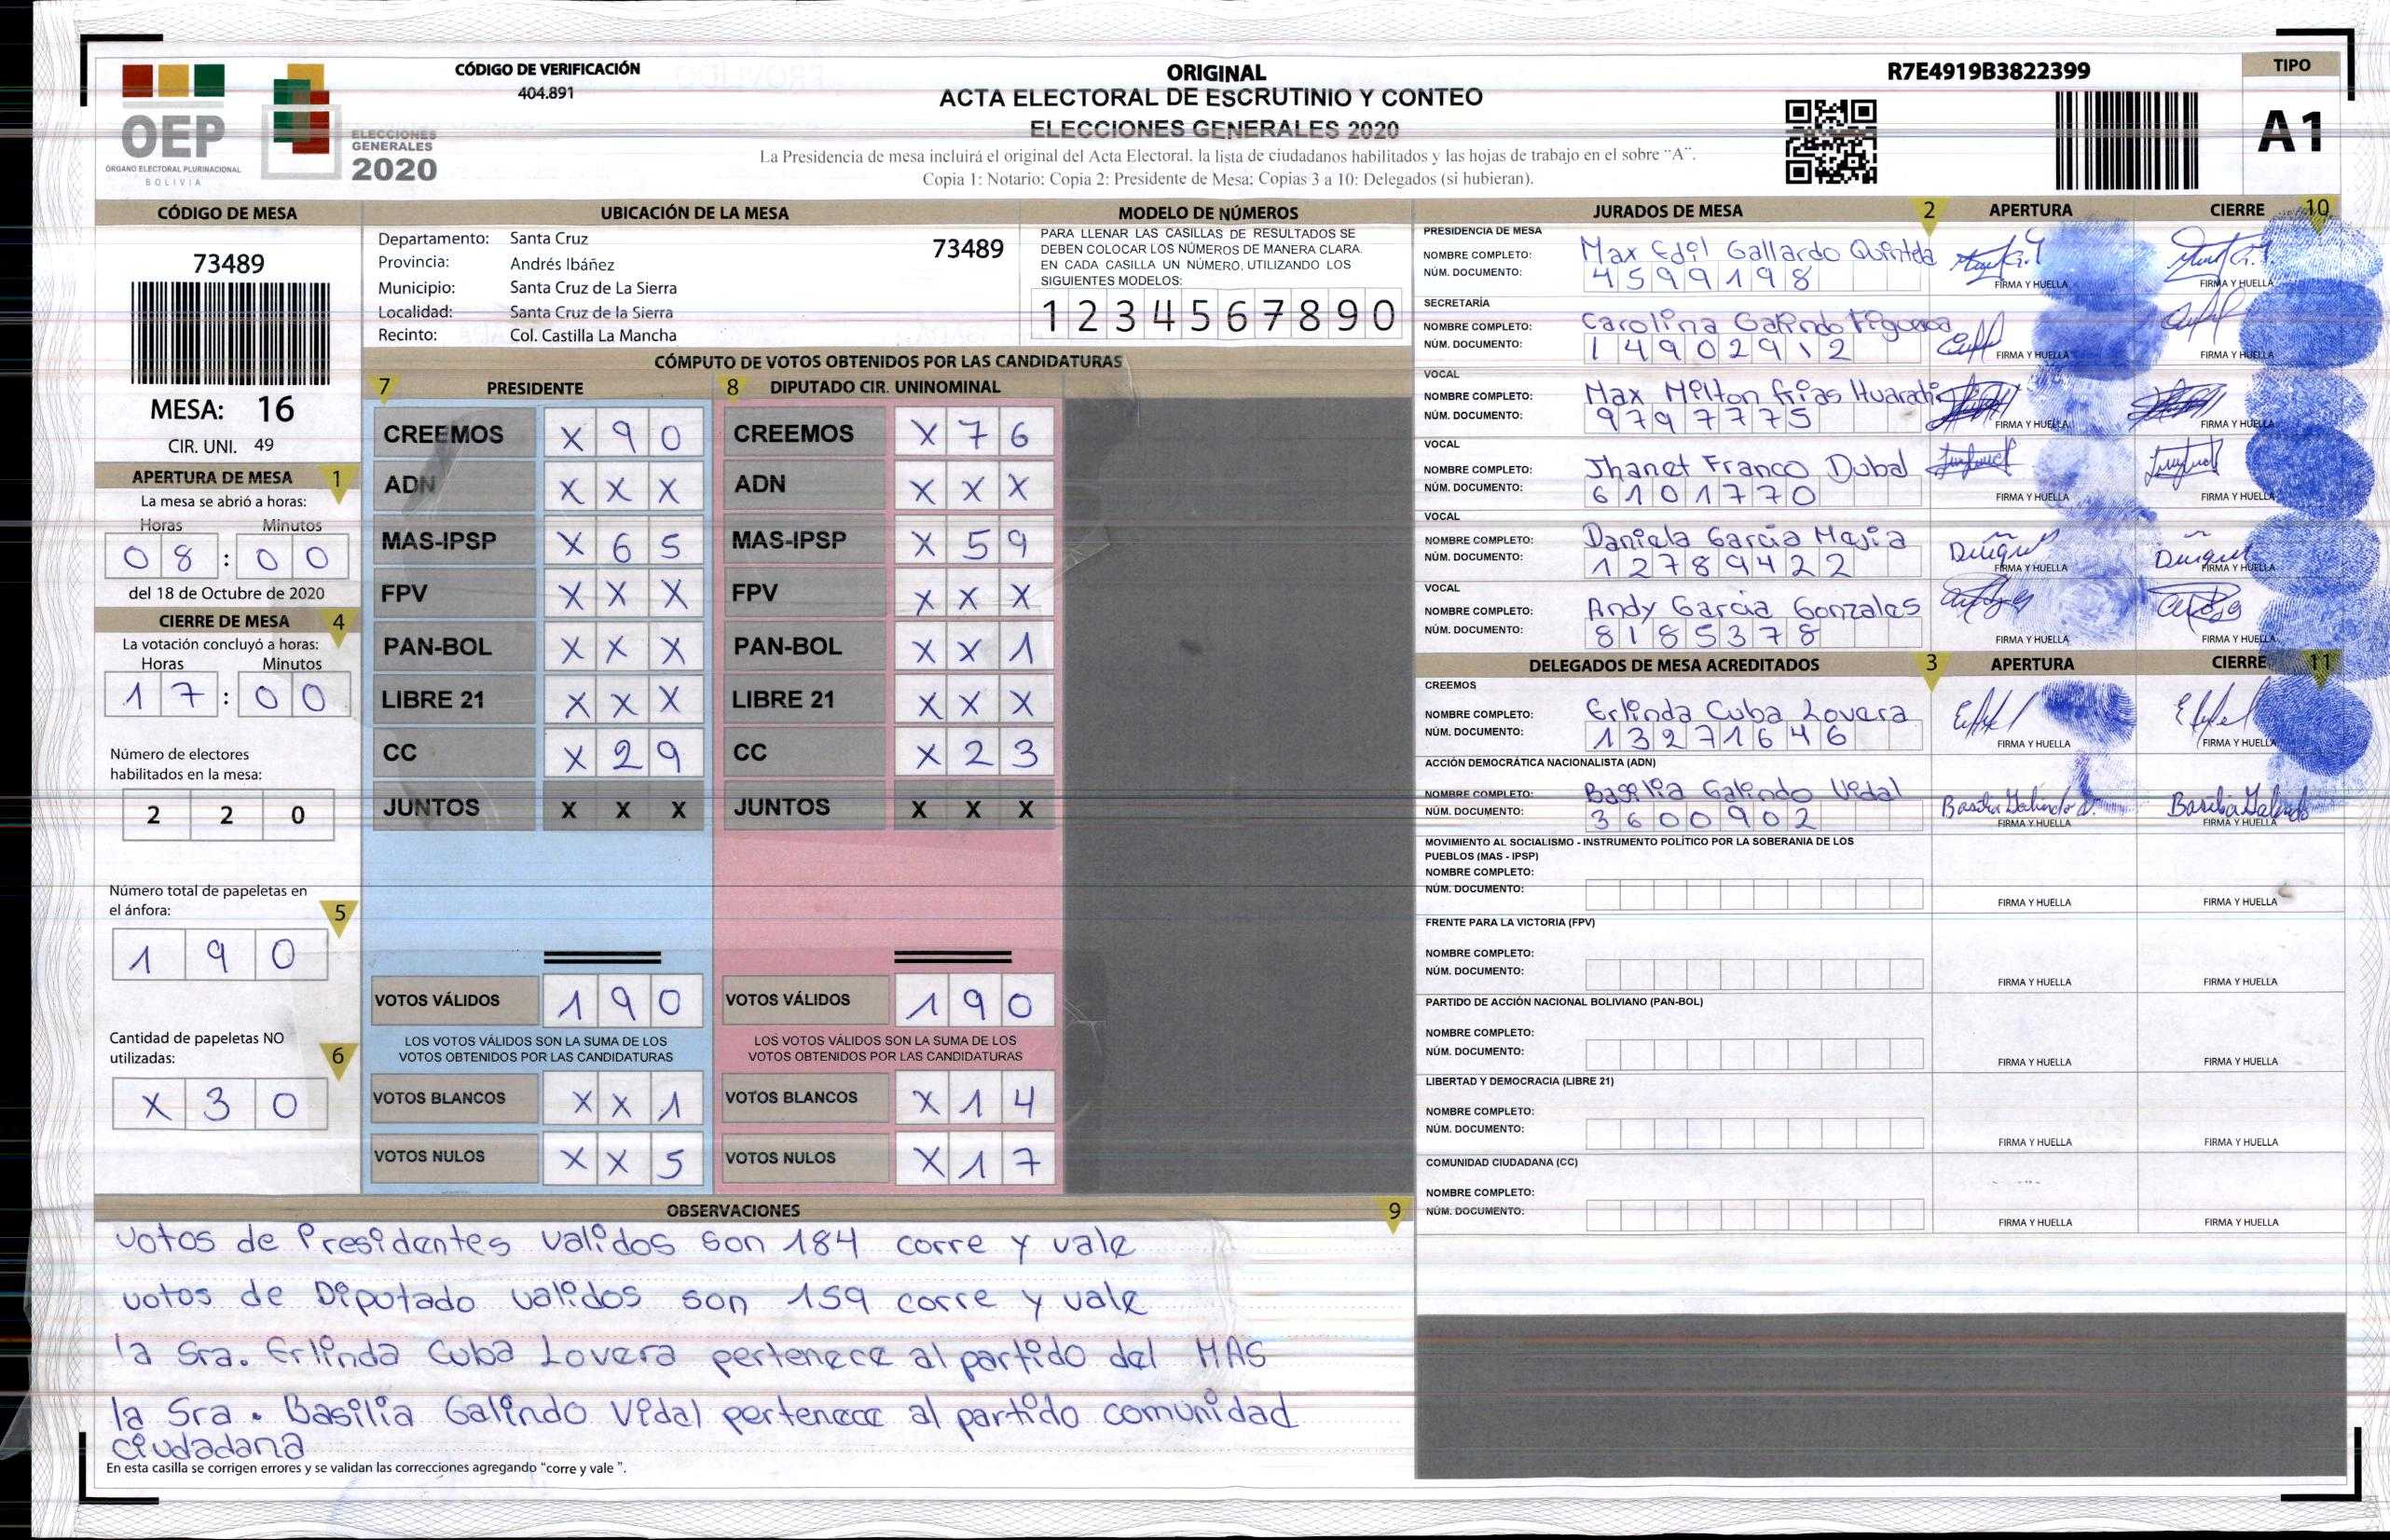 CÓDIGO DE VERIFICACIÓN
404.891
ORIGINAL
ACTA ELECTORAL DE ESCRUTINIO Y CONTEO
ELECCIONES GENERALES 2020
La Presidencia de mesa incluirá el original del Acta Electoral, la lista de ciudadanos habilitados y las hojas de trabajo en el sobre "A".
Copia 1: Notario; Copia 2: Presidente de Mesa; Copias 3 a 10: Delegados (si hubieran).
R7E4919B3822399
TIPO
A1
OEP
ÓRGANO ELECTORAL PLURINACIONAL
BOLIVIA
ELECCIONES
GENERALES
2020
CÓDIGO DE MESA
73489
MESA: 16
CIR. UNI. 49
UBICACIÓN DE LA MESA
Departamento: Santa Cruz
73489
Provincia: Andrés Ibáñez
Municipio: Santa Cruz de La Sierra
Localidad: Santa Cruz de la Sierra
Recinto: Col. Castilla La Mancha
MODELO DE NÚMEROS
PARA LLENAR LAS CASILLAS DE RESULTADOS SE
DEBEN COLOCAR LOS NÚMEROS DE MANERA CLARA.
EN CADA CASILLA UN NÚMERO, UTILIZANDO LOS
SIGUIENTES MODELOS:
1 2 3 4 5 6 7 8 9 0
APERTURA DE MESA 1
La mesa se abrió a horas:
Horas Minutos
0 8 : 0 0
del 18 de Octubre de 2020
CIERRE DE MESA 4
La votación concluyó a horas:
Horas Minutos
1 7 : 0 0
Número de electores
habilitados en la mesa:
2 2 0
Número total de papeletas en
el ánfora: 5
1 9 0
Cantidad de papeletas NO
utilizadas: 6
X 3 0
CÓMPUTO DE VOTOS OBTENIDOS POR LAS CANDIDATURAS
7 PRESIDENTE
CREEMOS X 9 0
ADN X X X
MAS-IPSP X 6 5
FPV X X X
PAN-BOL X X X
LIBRE 21 X X X
CC X 2 9
JUNTOS X X X
VOTOS VÁLIDOS 1 9 0
LOS VOTOS VÁLIDOS SON LA SUMA DE LOS
VOTOS OBTENIDOS POR LAS CANDIDATURAS
VOTOS BLANCOS X X 1
VOTOS NULOS X X 5
8 DIPUTADO CIR. UNINOMINAL
CREEMOS X 7 6
ADN X X X
MAS-IPSP X 5 9
FPV X X X
PAN-BOL X X 1
LIBRE 21 X X X
CC X 2 3
JUNTOS X X X
VOTOS VÁLIDOS 1 9 0
LOS VOTOS VÁLIDOS SON LA SUMA DE LOS
VOTOS OBTENIDOS POR LAS CANDIDATURAS
VOTOS BLANCOS X 1 4
VOTOS NULOS X 1 7
OBSERVACIONES 9
votos de Presidentes validos son 184 corre y vale
votos de Diputado validos son 159 corre y vale
la Sra. Erlinda Cuba Lovera pertenece al partido del MAS
la Sra. Basilia Galindo Vidal pertenece al partido comunidad
ciudadana
En esta casilla se corrigen errores y se validan las correcciones agregando "corre y vale ".
JURADOS DE MESA 2 APERTURA CIERRE 10
PRESIDENCIA DE MESA
NOMBRE COMPLETO: Max Edil Gallardo
NÚM. DOCUMENTO: 4599198
FIRMA Y HUELLA FIRMA Y HUELLA
SECRETARÍA
NOMBRE COMPLETO: Carolina Galindo Figueroa
NÚM. DOCUMENTO: 14902912
FIRMA Y HUELLA FIRMA Y HUELLA
VOCAL
NOMBRE COMPLETO: Max Milton Frias Huarachi
NÚM. DOCUMENTO: 9797775
FIRMA Y HUELLA FIRMA Y HUELLA
VOCAL
NOMBRE COMPLETO: Jhanet Franco Dubal
NÚM. DOCUMENTO: 6101770
FIRMA Y HUELLA FIRMA Y HUELLA
VOCAL
NOMBRE COMPLETO: Daniela Garcia Mejia
NÚM. DOCUMENTO: 12789422
FIRMA Y HUELLA FIRMA Y HUELLA
VOCAL
NOMBRE COMPLETO: Andy Garcia Gonzales
NÚM. DOCUMENTO: 8185378
FIRMA Y HUELLA FIRMA Y HUELLA
DELEGADOS DE MESA ACREDITADOS 3 APERTURA CIERRE 11
CREEMOS
NOMBRE COMPLETO: Erlinda Cuba Lovera
NÚM. DOCUMENTO: 13271646
FIRMA Y HUELLA FIRMA Y HUELLA
ACCIÓN DEMOCRÁTICA NACIONALISTA (ADN)
NOMBRE COMPLETO: Basilia Galindo Vidal
NÚM. DOCUMENTO: 3600902
FIRMA Y HUELLA FIRMA Y HUELLA
MOVIMIENTO AL SOCIALISMO - INSTRUMENTO POLÍTICO POR LA SOBERANIA DE LOS
PUEBLOS (MAS - IPSP)
NOMBRE COMPLETO:
NÚM. DOCUMENTO:
FIRMA Y HUELLA FIRMA Y HUELLA
FRENTE PARA LA VICTORIA (FPV)
NOMBRE COMPLETO:
NÚM. DOCUMENTO:
FIRMA Y HUELLA FIRMA Y HUELLA
PARTIDO DE ACCIÓN NACIONAL BOLIVIANO (PAN-BOL)
NOMBRE COMPLETO:
NÚM. DOCUMENTO:
FIRMA Y HUELLA FIRMA Y HUELLA
LIBERTAD Y DEMOCRACIA (LIBRE 21)
NOMBRE COMPLETO:
NÚM. DOCUMENTO:
FIRMA Y HUELLA FIRMA Y HUELLA
COMUNIDAD CIUDADANA (CC)
NOMBRE COMPLETO:
NÚM. DOCUMENTO:
FIRMA Y HUELLA FIRMA Y HUELLA